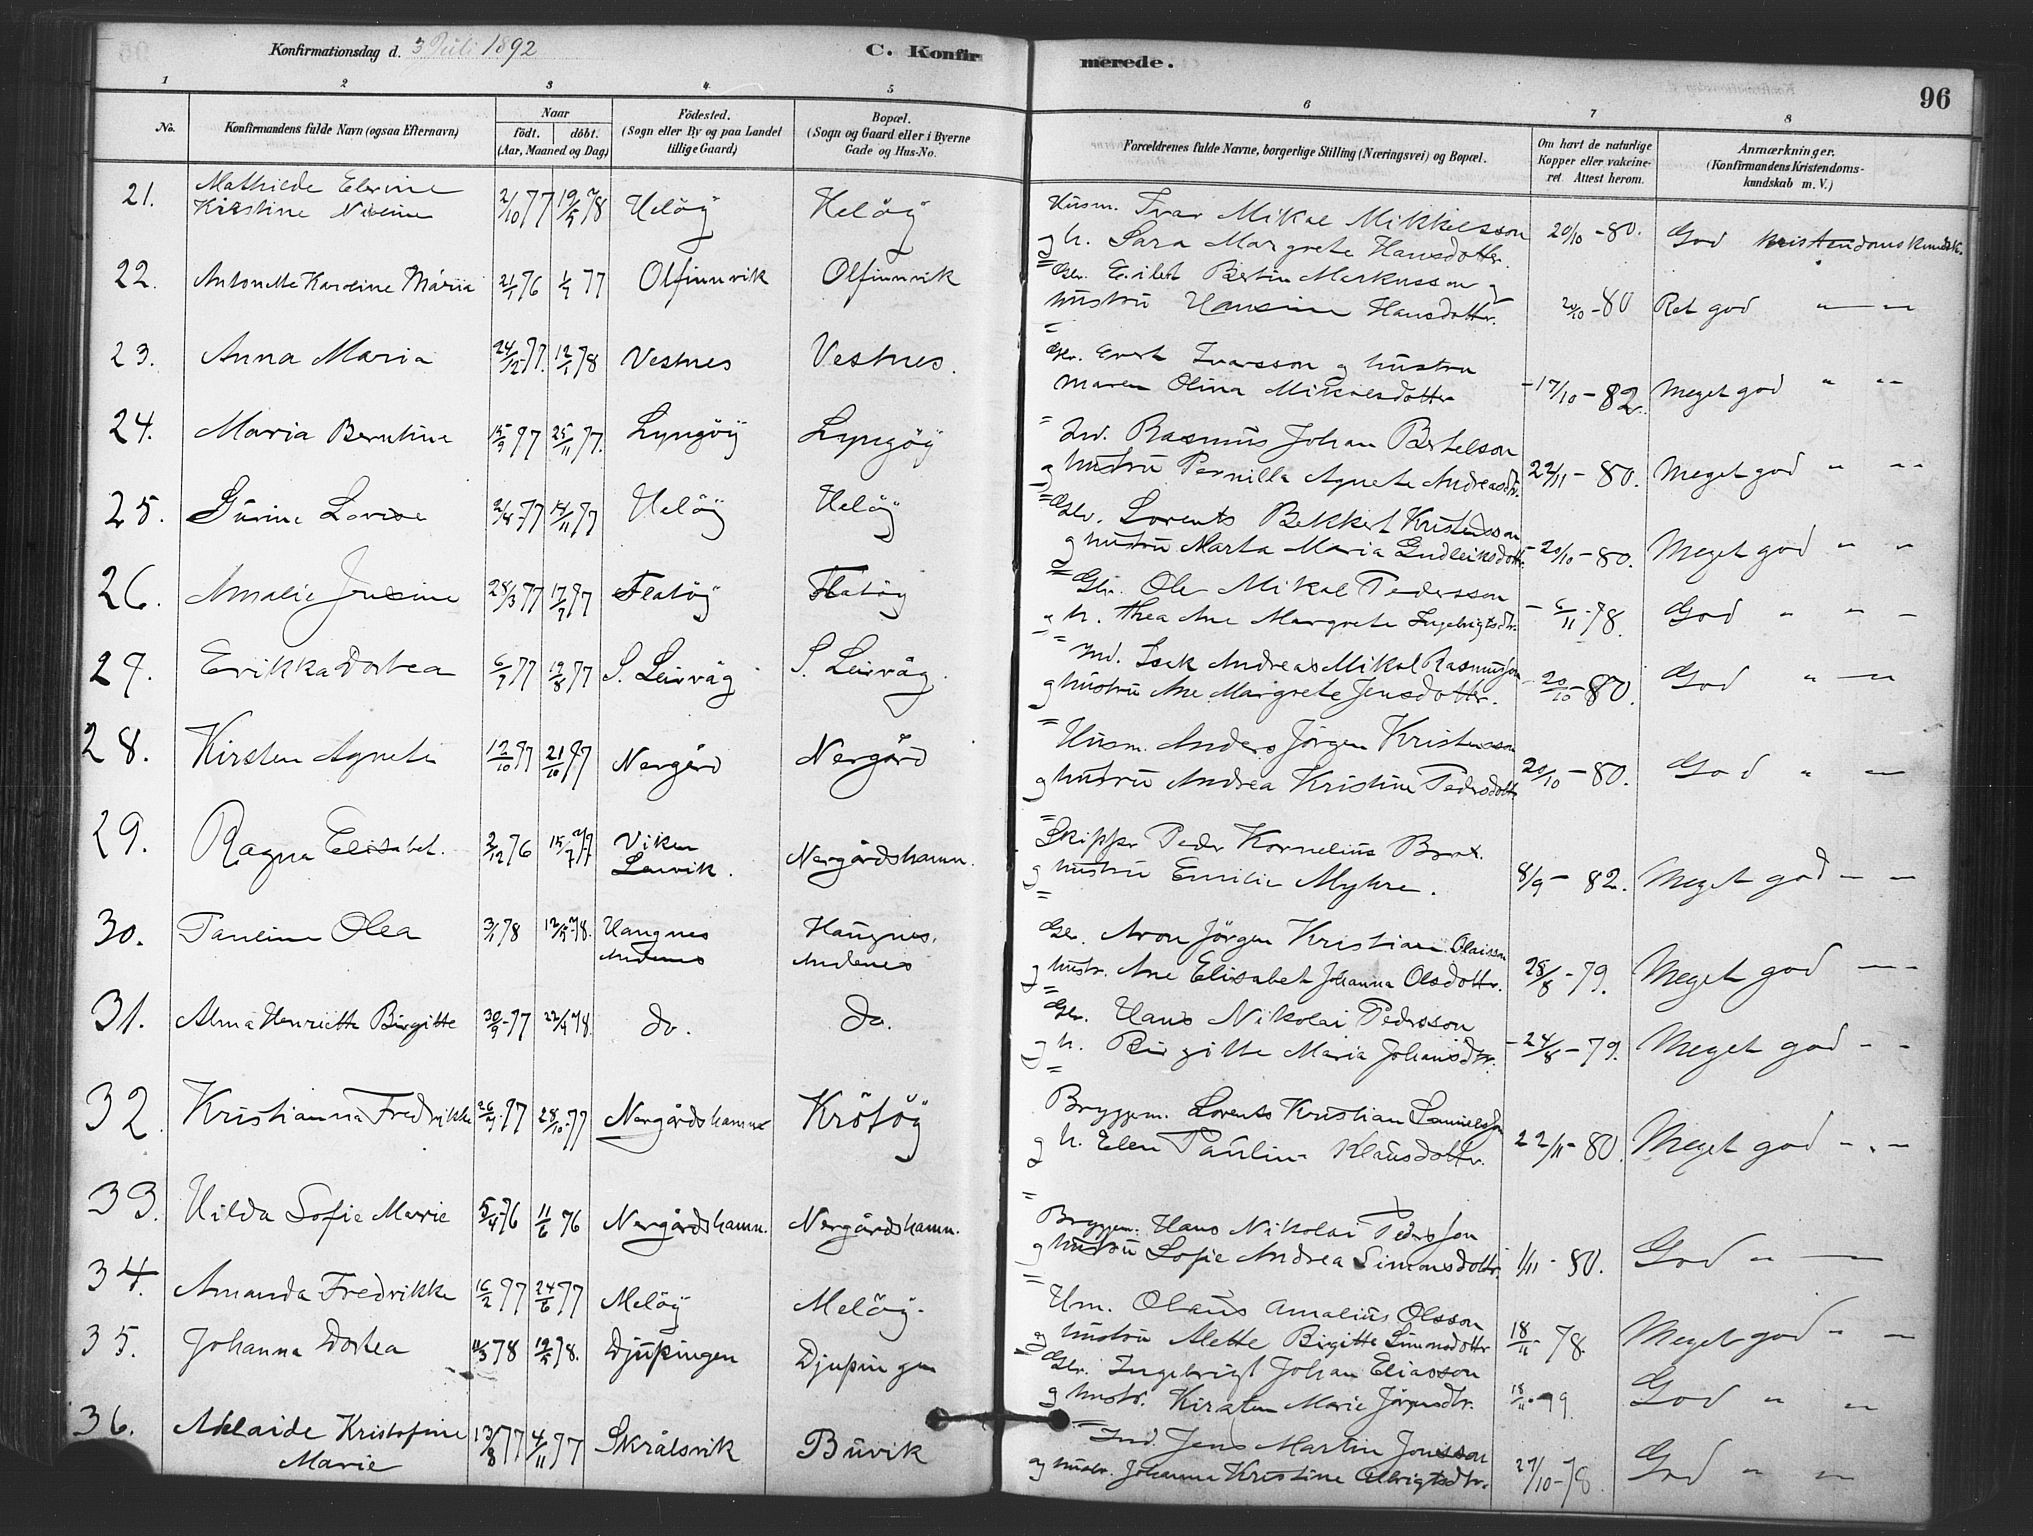 Konfirmationsdag d. 3 Juli 1892
C. Konfirmerede.
96
1 2 3 4 5 6 7 8
No.
Konfirmandens fulde Navn (ogsaa Efternavn)
Naar
födt. döbt.
(Aar, Maaned og Dag)
Födested.
(Sogn eller By og paa Landet
tillige Gaard)
Bopæl.
(Sogn og Gaard eller i Byerne
Gade og Hus-No.
Forældrenes fulde Navne, borgerlige Stilling (Næringsvei) og Bopæl.
Om havt de naturlige
Kopper eller vakcine-
ret. Attest herom.
Anmærkninger.
(Konfirmandens Kristendoms-
kundskab m. V.)
21. Mathilde Elerine
Kirstine Nicoline 2/10 77 19/5 78 Helöÿ Helöÿ
Husm. Ivar Mikal Mikkelsson
og h. Sara Margrete Hansdotter. 20/10 - 80. God Kristendomskundsk.
22. Antonette Karoline Maria 21/1 76 1/7 77 Olfinnvik Olfinnvik
Gbr. Eilert Bertin Markusson og
hustru Hansine Hansdotter. 20/10 - 80 Ret god " —
23. Anna Maria 24/12 77. 12/1 78 Vestnes Vestnes.
Gbr. Evert Ivarsson og hustru
Maren Olina Mikalsdotter - 17/10 - 82. Meget god " "
24. Maria Berntine 15/9 77 25/11 77. Lyngöÿ Lyngöÿ
Ind. Rasmus Johan Bertelson
og hustru Pernilla Agnete Andreasdtr. 22/11 - 80. Meget god " "
25. Gurine Lovise 2/8 77 14/11 77 Helöÿ Helöÿ
Gbr. Lorents Bekkert Kristensson
og hustru Marta Maria Gudleiksdottr. - 20/10 - 80. Meget god " "
26. Amalie Jensine 28/3 77 17/7 77 Flatöÿ Flatöÿ
Gbr. Ole Mikal Pedersson
og h. Thea Ane Margrete Ingebrigtsdtr. - 6/11 - 78. God " " -
27. Erikka Dortea 6/7 77 19/8 77 S. Leirvåg S. Leirvåg.
Ind. Isak Andreas Mikal Rasmusson
og hustru Ane Margrete Jensdotter. - 20/10 - 80. God " —
28. Kirsten Agnete 12/10 77 21/10 77 Nergård Nergård
Husm. Anders Jörgen Kristensson
og hustru Andrea Kristine Pedersdottr 20/10 - 80. God " —
29. Ragna Elisabet. 3/12 76 15/7 77 Viken
Leirvik. Nergårdshamn.
Skipper Peder Kornelius Brox.
og hustru Emilie Myhre. 8/9 - 82. Meget god — —
30. Pauline Olea 3/1 78 12/5 78. Haugnes
Andenes Haugnes.
Andenes
Gbr. Aron Jörgen Kristian Olaisson
og hustr. Ane Elisabet Johanna Olsdottr. 28/8 - 79. Meget god — -
31. Alma Henriette Birgitte 30/9 - 77 22/4 78. do. do.
Gbr. Hans Nikolai Pedersson
og h. Birgitte Maria Johansdtr. - 24/8 - 79. Meget god - -
32. Kristianna Fredrikke 26/9 77 28/10 77 Nergårdshamn Krötöÿ
Bryggem. Lorents Kristian Samuelsson
og h. Elen Pauline Klausdottr. 22/11 - 80. Meget god - . -
33. Hilda Sofie Marie 5/4 76 11/6 76 Nergårdshamn. Nergårdshamn.
Bryggem. Hans Nikolai Pedersson
og hustru Sofie Andrea Simonsdottr. 1/11 - 80. God " —
34. Amanda Fredrikke 16/2 77 24/6 77 Melöÿ Melöÿ.
Hm. Olaus Amalius Olsson
og hustru Alette Birgitte Simonsdottr 18/11 - 78. Meget god - -
35. Johanna Dortea 11/3 78 19/5 78. Djupingen Djupingen
Gbr. Ingebrigt Johan Eliasson
og hustr. Kirsten Marie Jörgensdtr. 18/11 - 99. God " "
36. Adelaide Kristofine
Marie 13/8 77 4/11 77 Skrålsvik Buvik
Ind. Jens Martin Jonsson
og hustr. Johanna Kristine Albrigtsdtr. 27/10 - 78. God " "